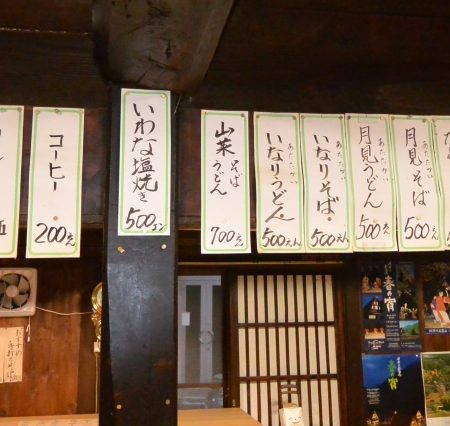 コーヒー
200えん
いわな塩焼き
500エン
山菜
そば
うどん
700えん
あたたかい
いなりうどん
500えん
あたたかい
いなりそば。
500えん
あたたかい
月見うどん
500えん
あたたかい
月見そば
500え
おすすめ
手打そば